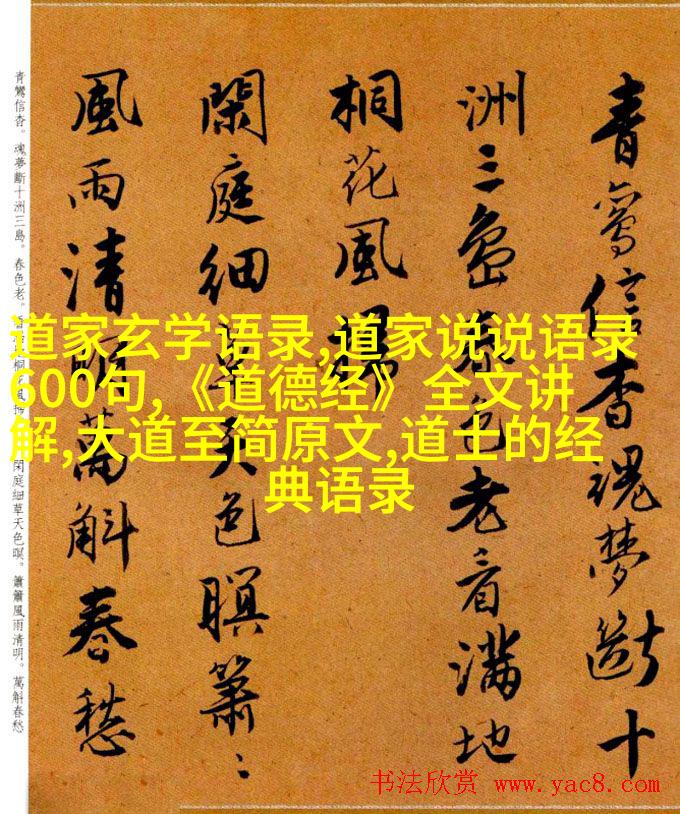 青鸞信杳魂夢斷十
洲三島春色老香滿地
桐花風掃
閑庭細草天色暝簫〻
風雨清明萬斛春愁
青鸞信杳。魂夢斷十洲三島。春色老。香滿地桐花風掃。閑庭細草天色暝。簫簫風雨清明。萬斛春愁
道家玄学语录,道家说说语录
600句,《道德经》全文讲
解,大道至简原文,道士的经
典语录
书法欣赏 www.yac8.com